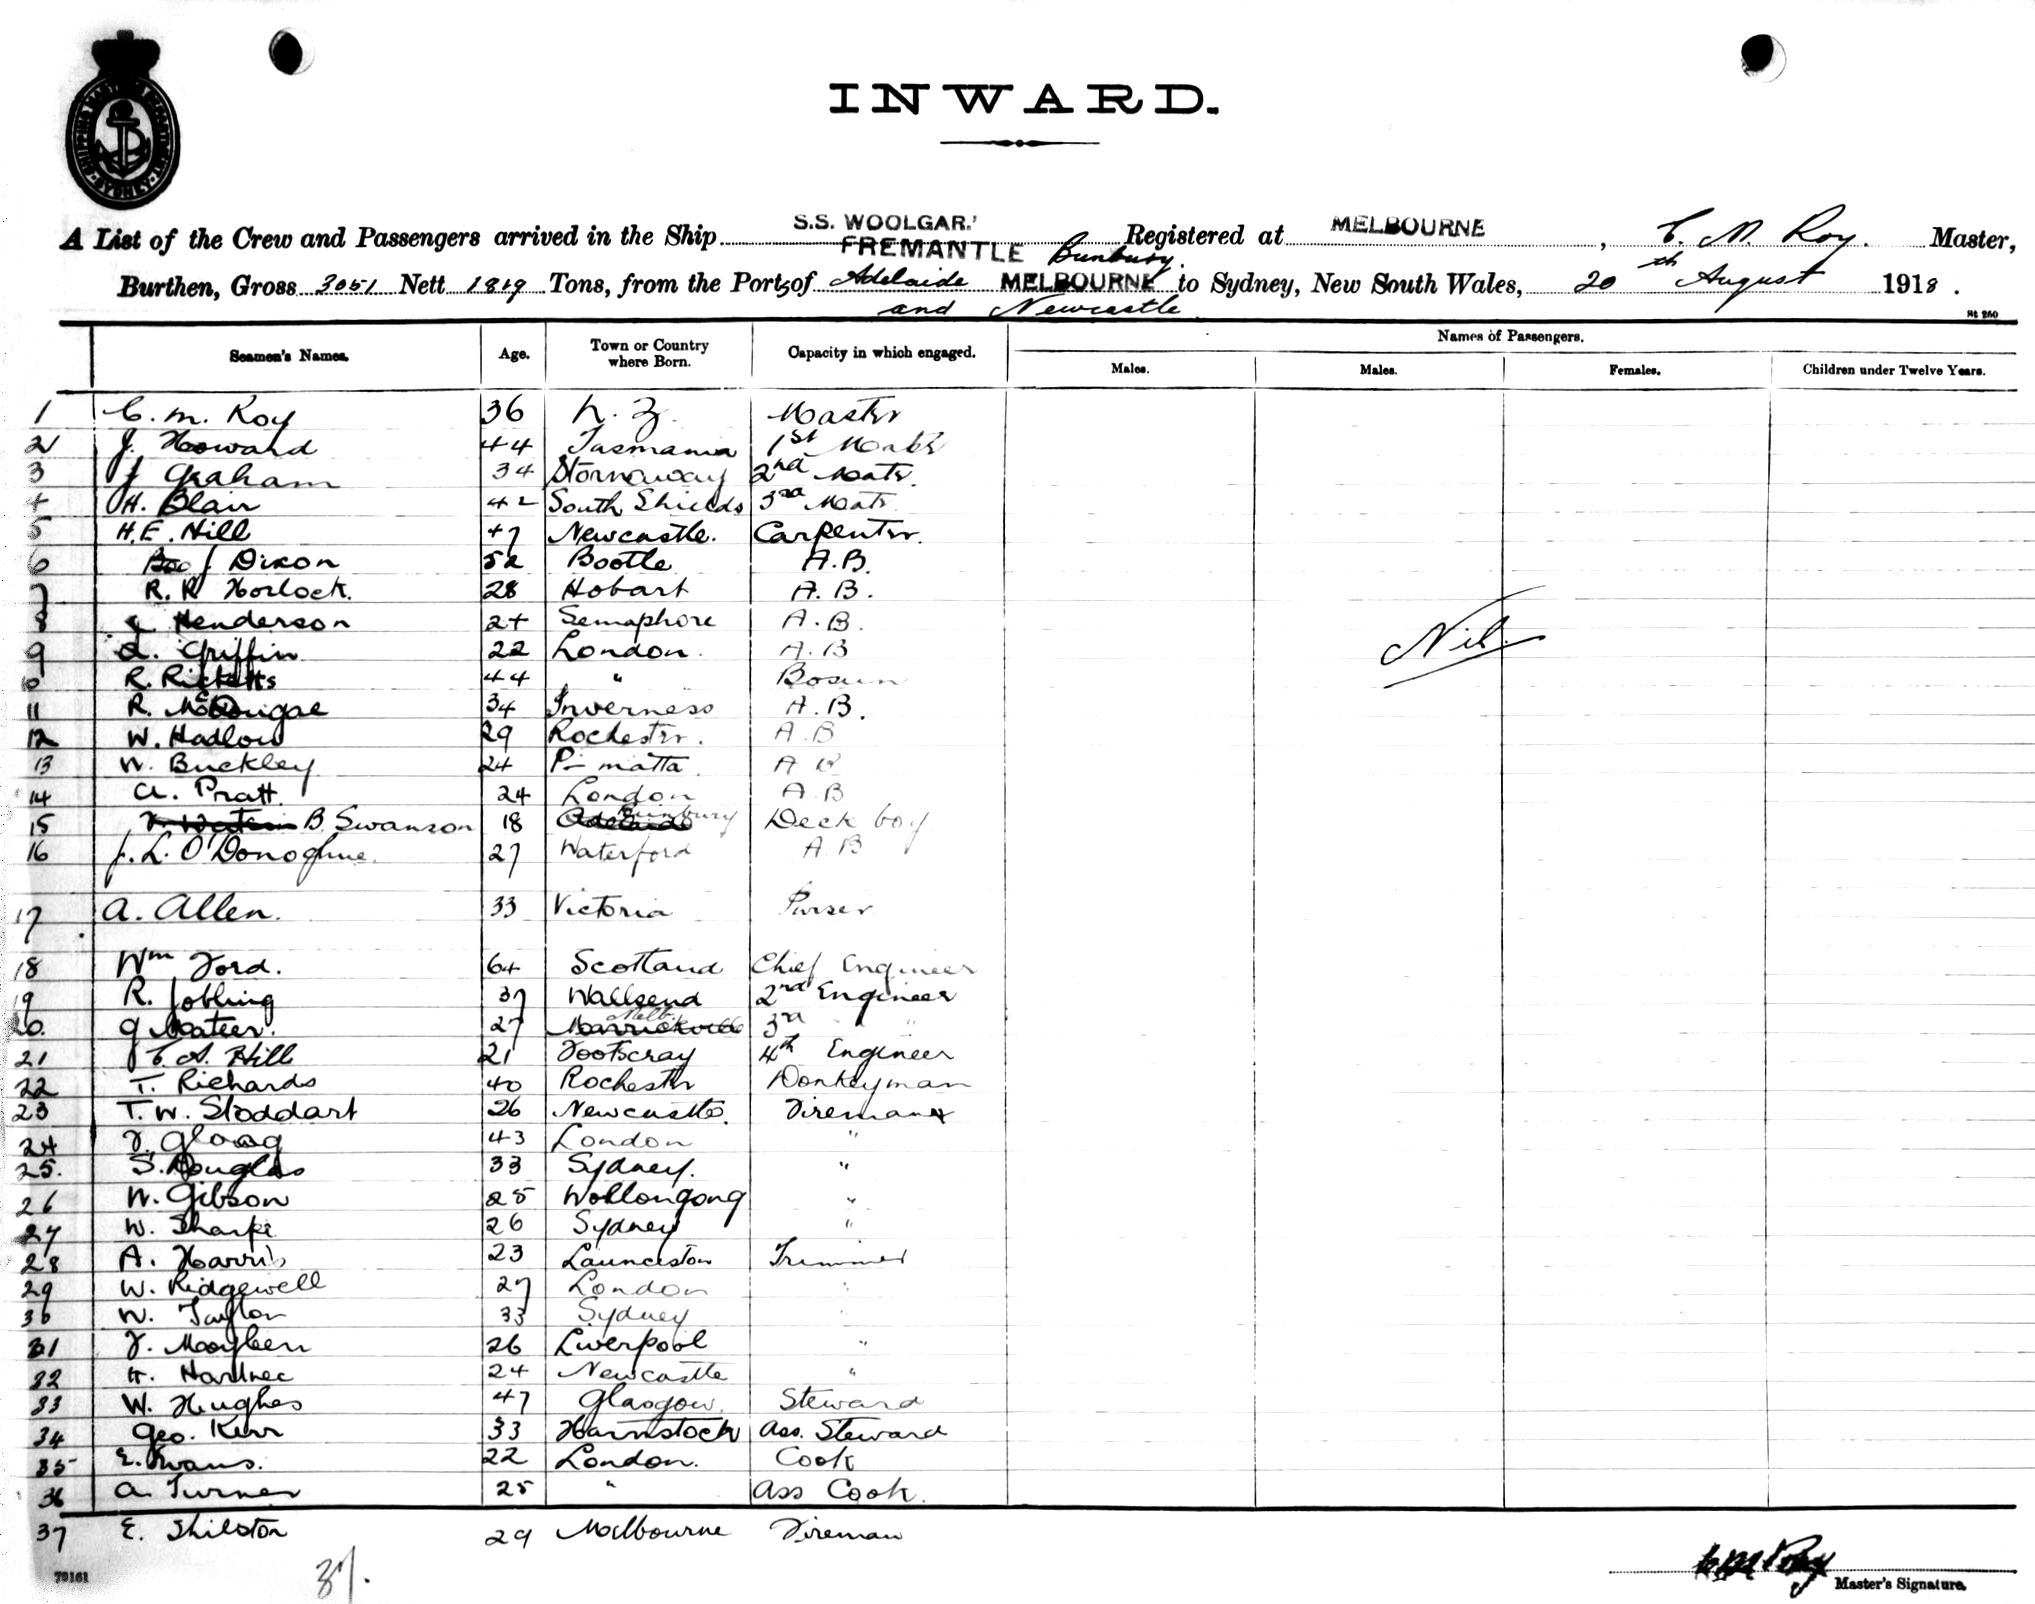 SHIPPING MASTER'S DEPARTMENT SYDNEY
INWARD.
A List of the Crew and Passengers arrived in the Ship S.S. WOOLGAR. Registered at MELBOURNE, C. M. Roy. Master,
FREMANTLE Bunbury.
Burthen, Gross 3051 Nett 1819 Tons, from the Ports of Adelaide MELBOURNE to Sydney, New South Wales, 20th August 1918.
and Newcastle
St 260
Seamen's Names. Age. Town or Country where Born. Capacity in which engaged. Names of Passengers.
Males. Males. Females. Children under Twelve Years.
1 C. M. Roy 36 N. Z. Master
2 J. Howard 44 Tasmania 1st Mate
3 J Graham 34 Stornaway 2nd Mate.
4 H. Blair 42 South Shields 3rd Mate
5 H. E. Hill 47 Newcastle. Carpenter.
6 J Dixon 52 Bootle A.B.
7 R. R Horlock. 28 Hobart A. B.
8 Henderson 24 Semaphore A. B.
Nil
9 L. Griffin 22 London. A. B
10 R. Ricketts 44 " Bosun
11 R. McDougal 34 Inverness A. B.
12 W. Hadlow 29 Rochester. A. B
13 W. Buckley 24 P-matta. A B
14 A. Pratt. 24 London A. B
15 B. Swanson 18 Adelaide Bunbury Deck boy
16 J. L. O'Donoghue. 27 Waterford A. B
17 A. Allen. 33 Victoria Purser
18 Wm Ford. 64 Scotland Chief Engineer
19 R. Jobling 37 Wallsend 2nd Engineer
20. G Mateer. 27 Marrickville Melb. 3rd "
21 C. A. Hill 21 Footscray 4th Engineer
22 T. Richards 40 Rochester Donkeyman
23 T. W. Stoddart 26 Newcastle. Fireman
24 43 London "
25. S. Douglas 33 Sydney. "
26 W. Gibson 25 Wollongong "
27 W. Sharpe 26 Sydney "
28 A. Harris 23 Launceston Trimmer
29 W. Ridgewell 27 London "
30 W. Taylor 33 Sydney "
31 26 Liverpool "
32 H. 24 Newcastle "
33 W. Hughes 47 Glasgow. Steward
34 Geo. Kerr 33 Ass. Steward
35 E. Evans. 22 London. Cook
36 A. Turner 25 " Ass Cook.
37 E. Shilston 29 Melbourne Fireman
37.
79161
C M Roy
Master's Signature.